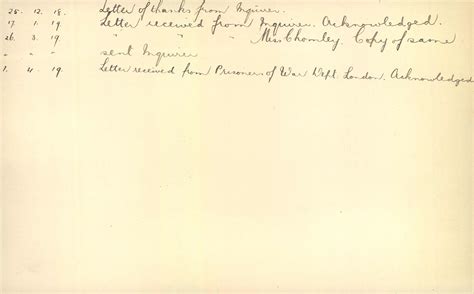 28. 12. 18. Letter of thanks from Inquirer.
17. 1. 19. Letter received from Inquirer. Acknowledged.
26. 3. 19. " " " Miss Chomley. Copy of same
sent Inquirer
1. 4. 19. Letter received from Prisoners of War Dept. London. Acknowledged